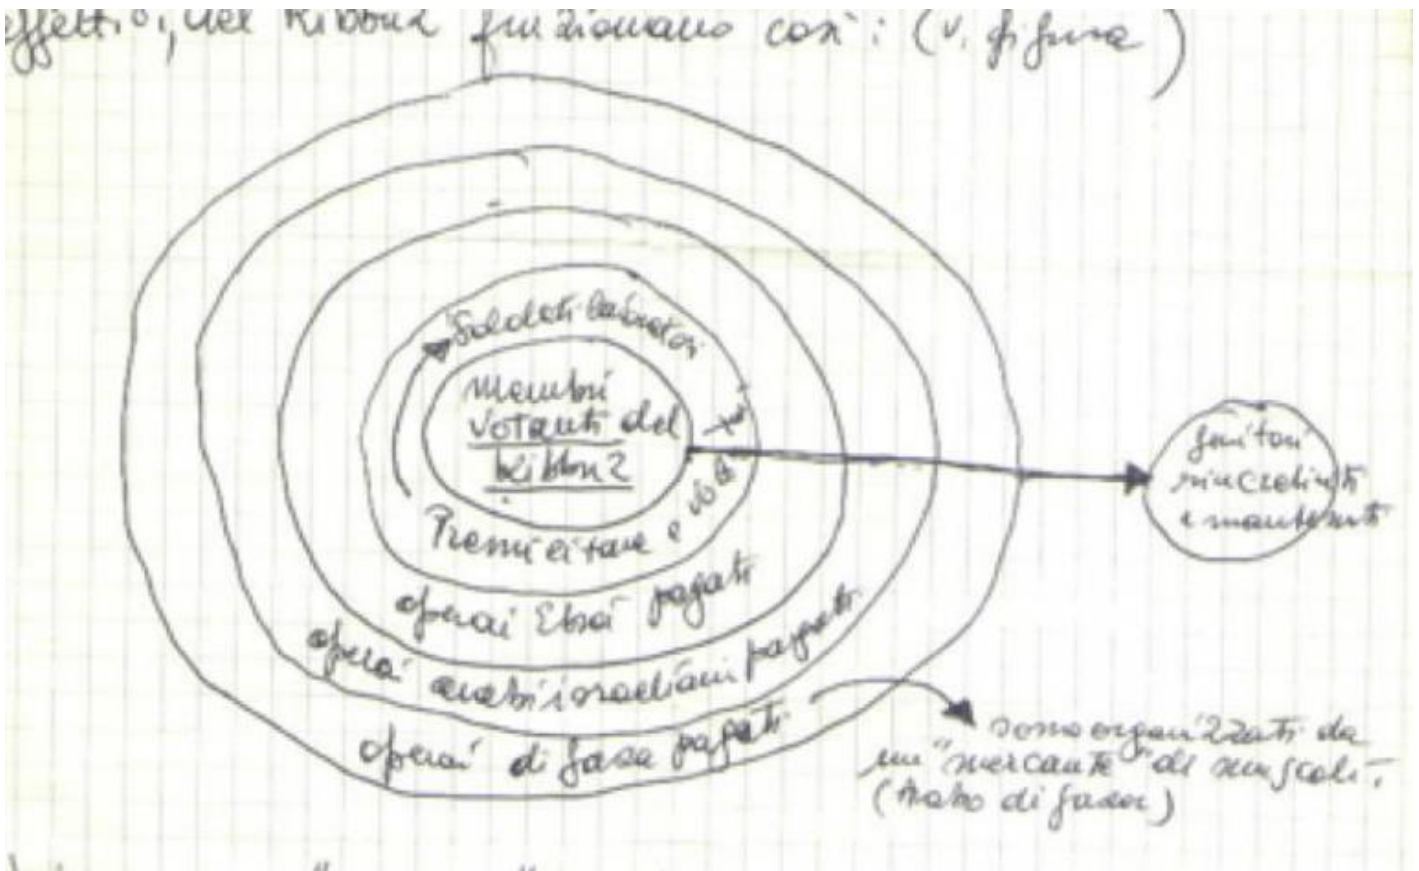 effettivi, nel Kibbuz funzionano così: (v. figura)
Soldati lavoratori
Membri
votanti del
Kibbuz
e
operai Ebrei pagati
operai arabi israeliani pagati
operai di gaza pagati
genitori
rincretiniti
e mantenuti
sono organizzati da
un "mercante" di muscoli.
(Arabo di gaza)